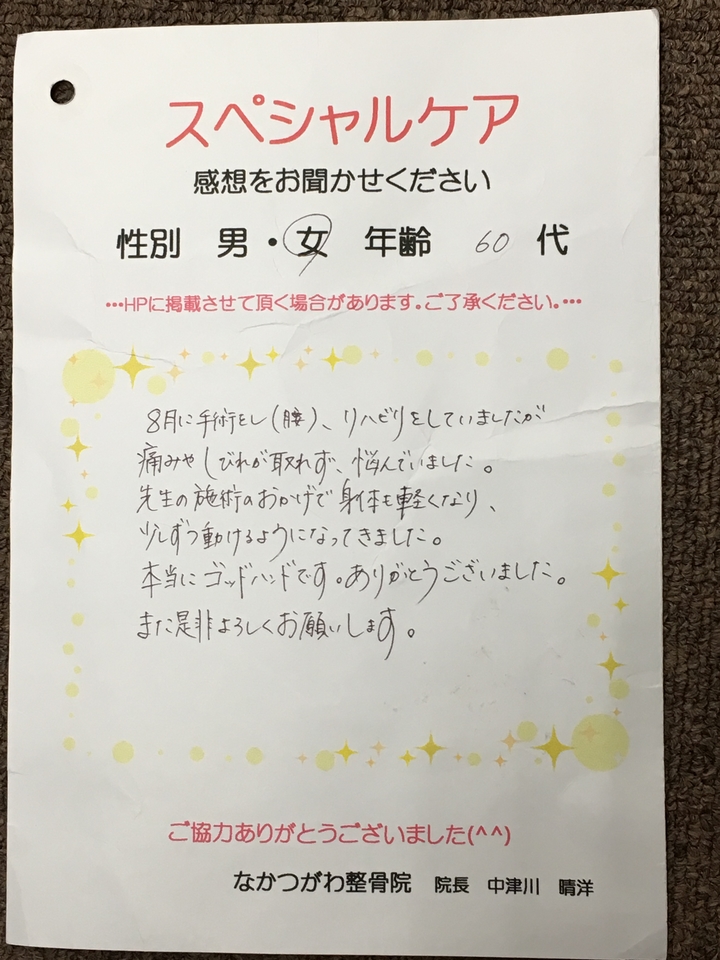 スペシャルケア
感想をお聞かせください
性別 男・女 年齢 60 代
…HPに掲載させて頂く場合があります。ご了承ください。…
8月に手術をし(腰)、リハビリをしていましたが
痛みやしびれが取れず、悩んでいました。
先生の施術のおかげで身体も軽くなり、
少しずつ動けるようになってきました。
本当にゴッドハンドです。ありがとうございました。
また是非よろしくお願いします。
ご協力ありがとうございました(^^)
なかつがわ整骨院 院長 中津川 晴洋